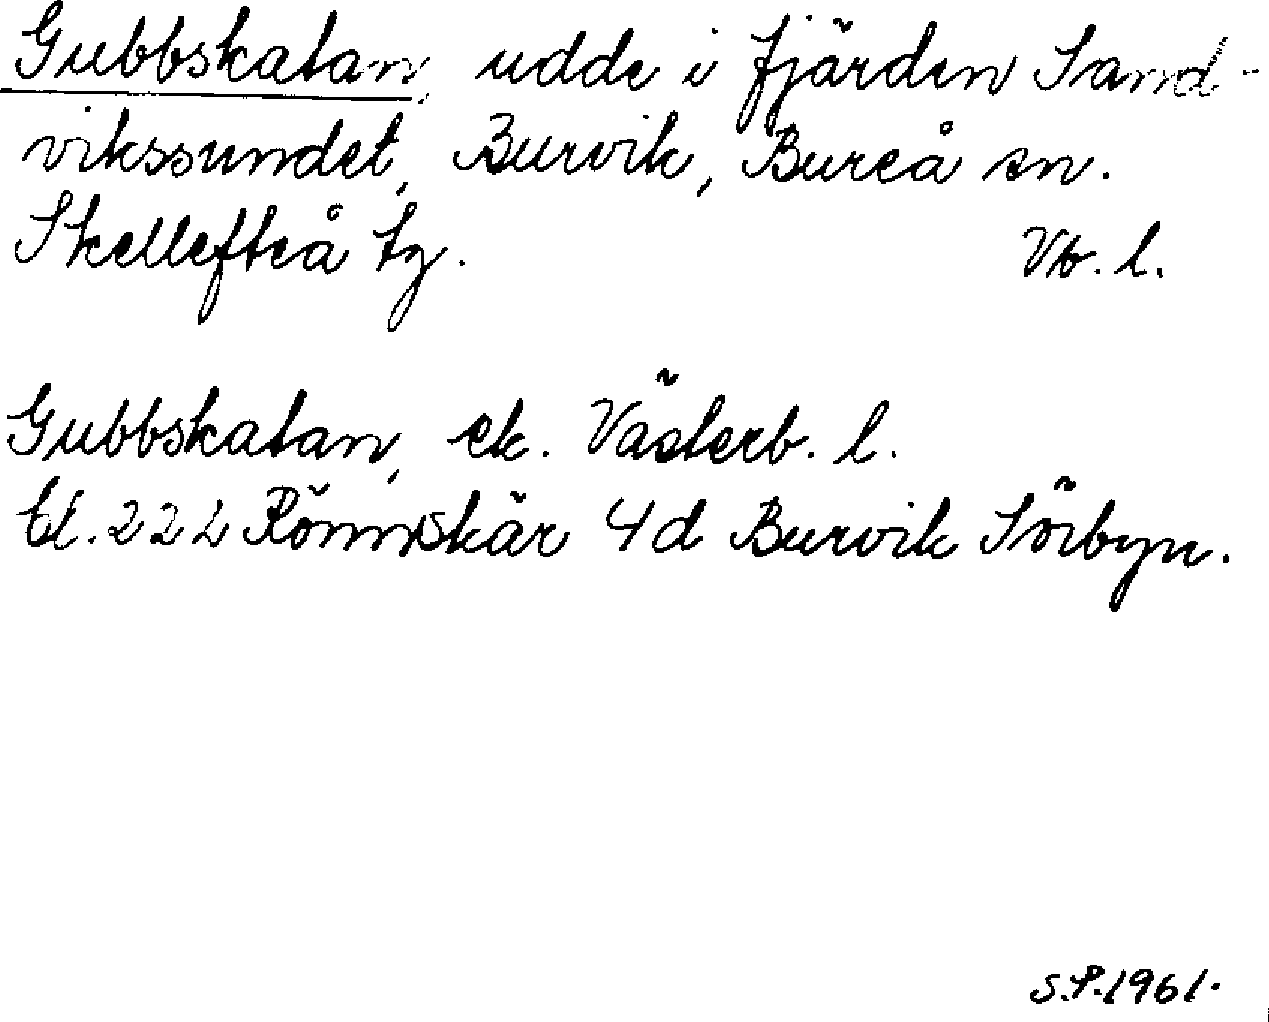 Gubbskatan, udde i fjärden Sand-
vikssundet, Burvik, Bureå sn.
Skellefteå tg. Vb. l.
Gubbskatan, ek. Västerb. l.
bl. 22 L Rönnskär 4d Burvik Sörbyn.
S.P. 1961.